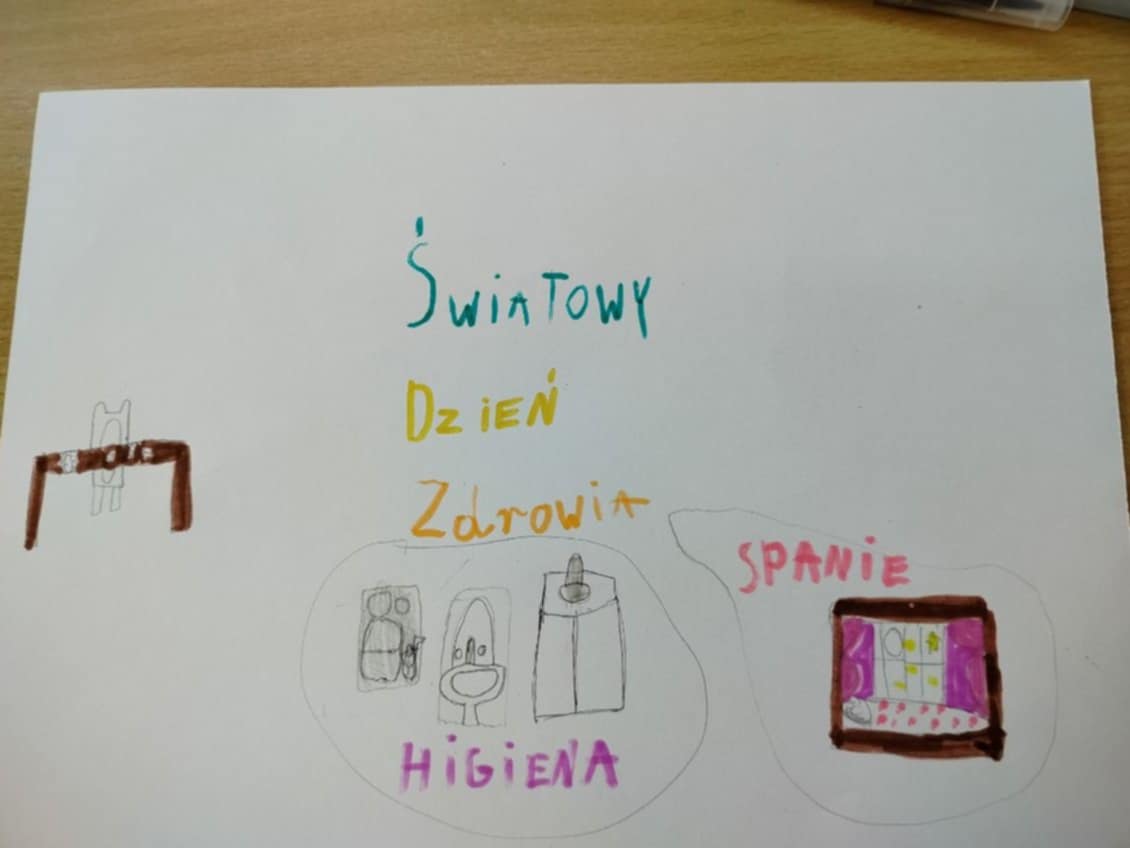 Światowy
Dzień
Zdrowia
SPANiE
HiGiENA